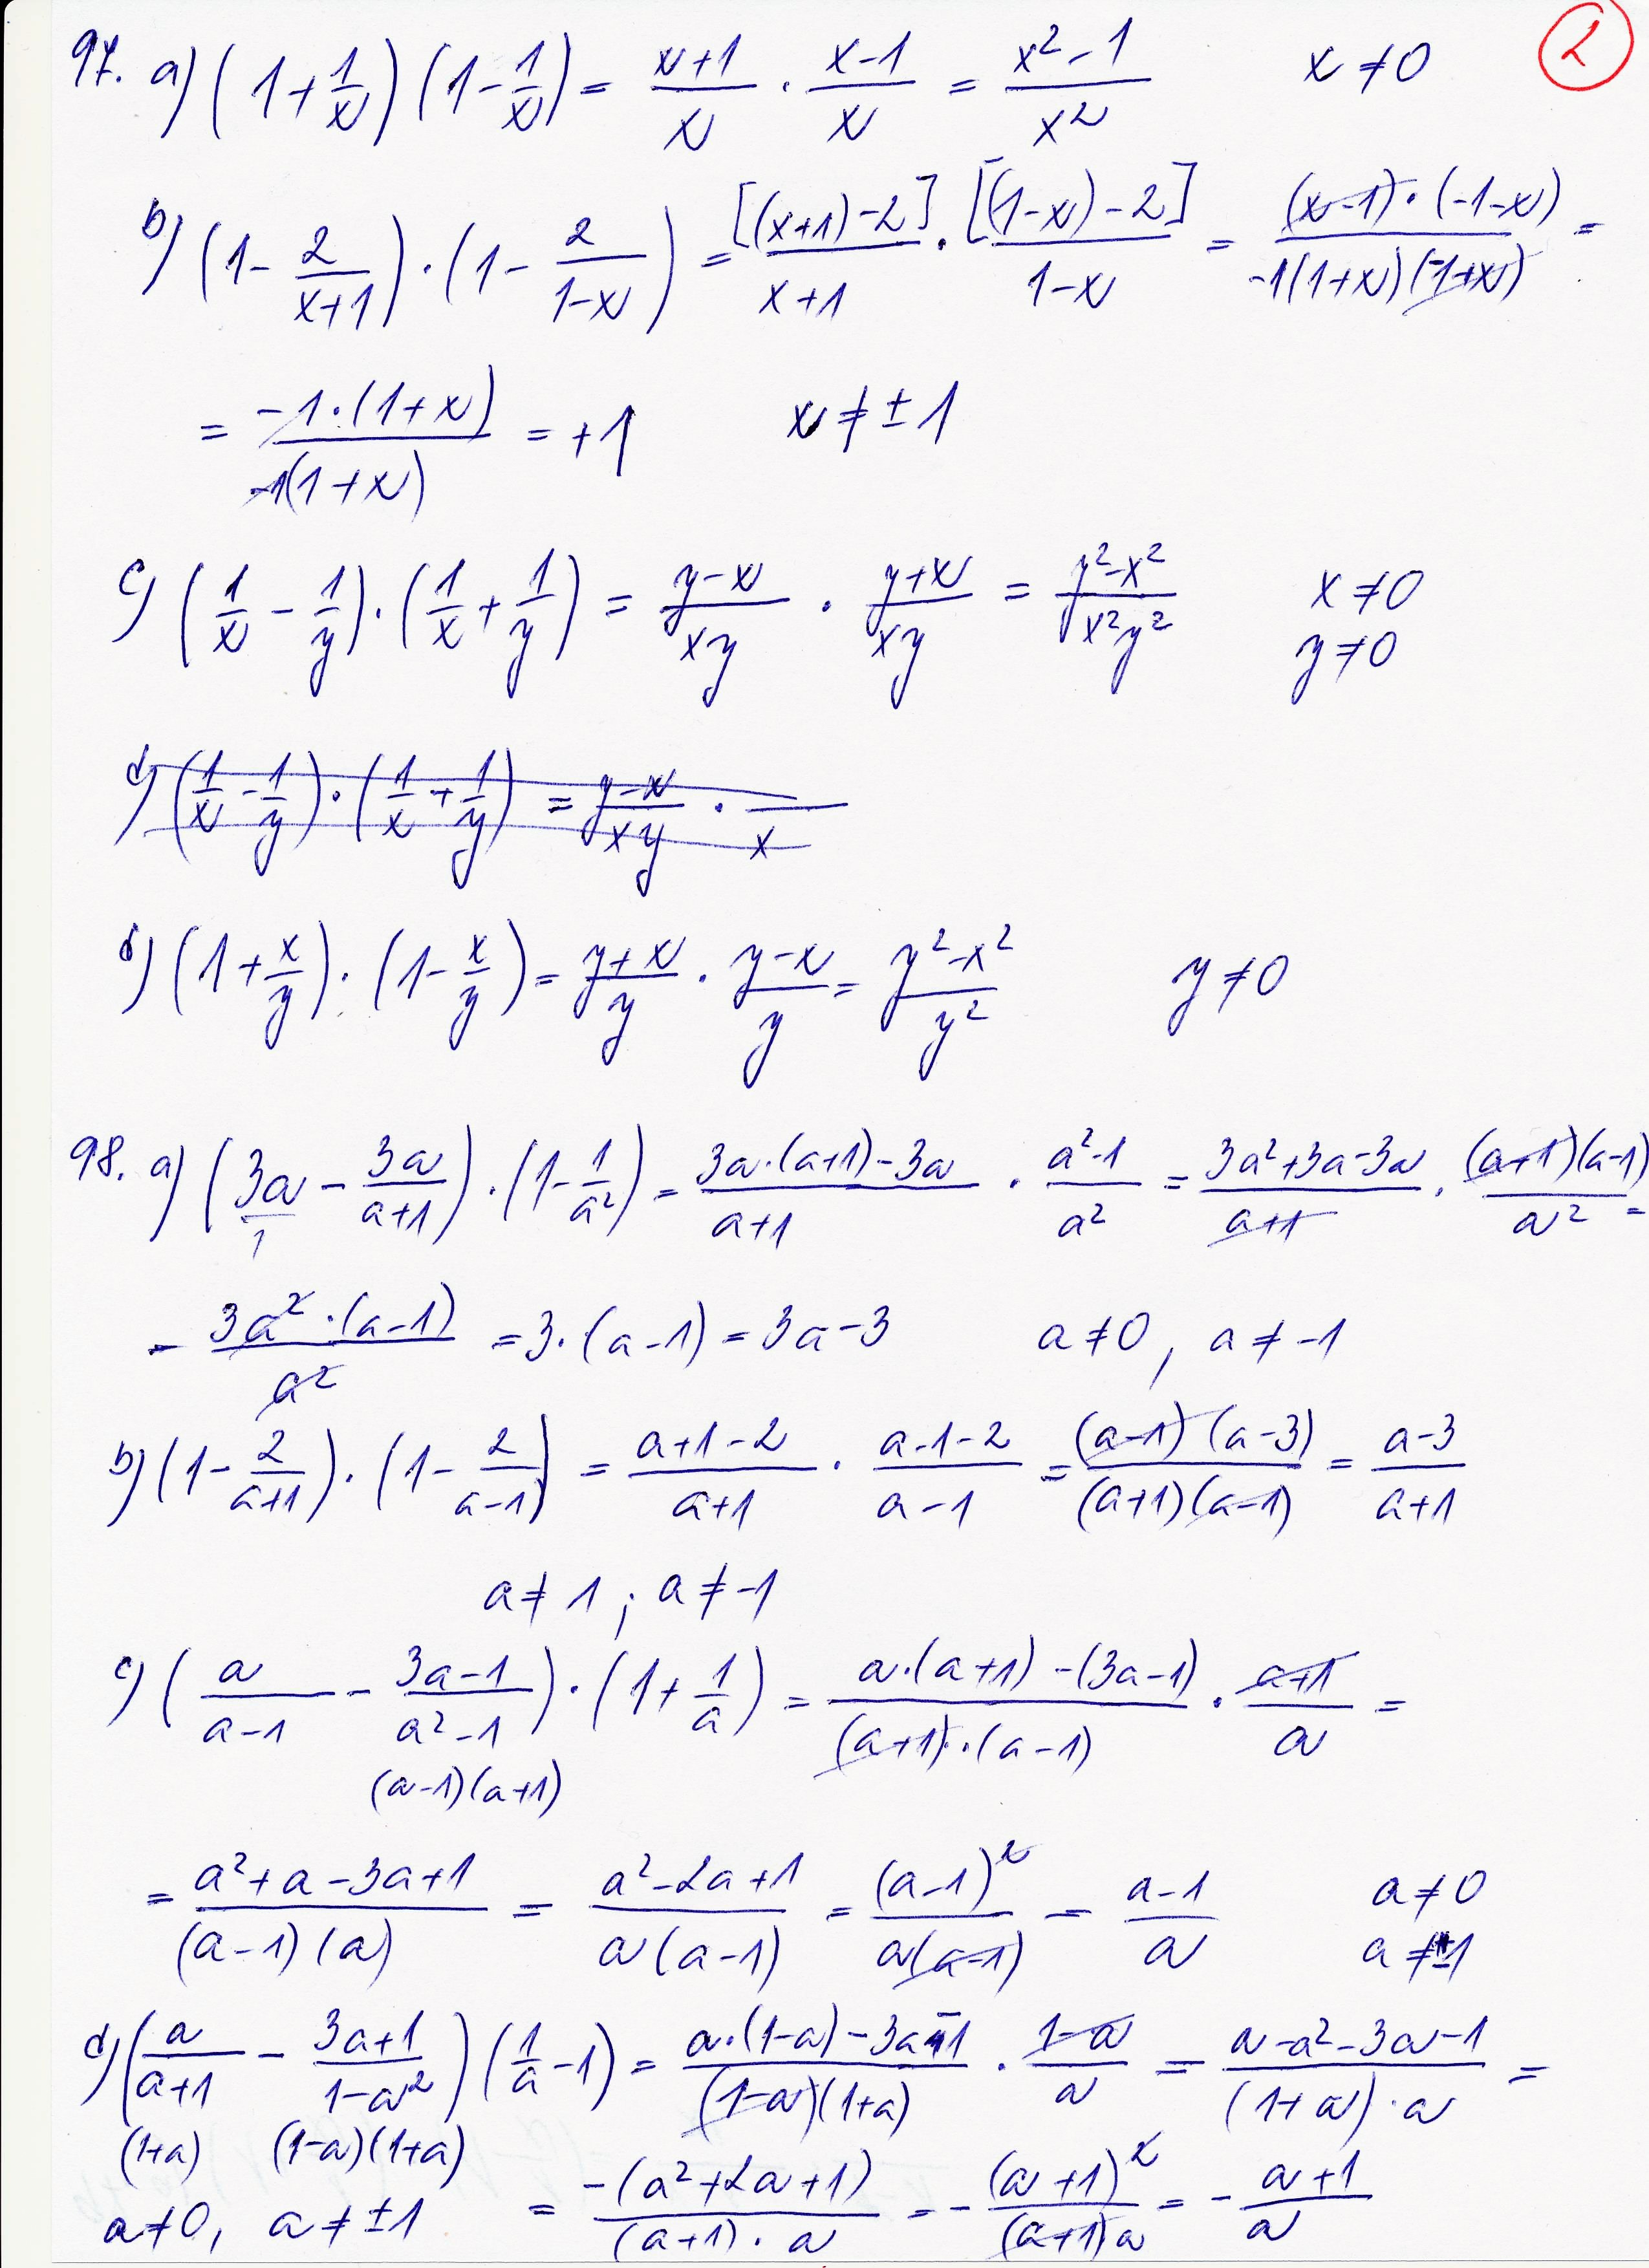 ②
97. a) (1 + 1/x) (1 - 1/x) = (x+1)/x · (x-1)/x = (x² - 1)/x²    x ≠ 0
b) (1 - 2/(x+1)) · (1 - 2/(1-x)) = [(x+1) - 2]/(x+1) · [(1-x) - 2]/(1-x) = (x-1) · (-1-x)/(-1(1+x)(-1+x)) =
= -1·(1+x)/(-1(1+x)) = +1    x ≠ ±1
c) (1/x - 1/y) · (1/x + 1/y) = (y-x)/xy · (y+x)/xy = (y²-x²)/x²y²    x ≠ 0
y ≠ 0
d) (1/x - 1/y) · (1/x + 1/y) = (y-x)/xy · /x
d) (1 + x/y) · (1 - x/y) = (y+x)/y · (y-x)/y = (y²-x²)/y²    y ≠ 0
98. a) (3a/1 - 3a/(a+1)) · (1 - 1/a²) = (3a·(a+1) - 3a)/(a+1) · (a²-1)/a² = (3a²+3a-3a)/(a+1) · (a+1)(a-1)/a² =
= 3a²·(a-1)/a² = 3·(a-1) = 3a-3    a ≠ 0, a ≠ -1
b) (1 - 2/(a+1)) · (1 - 2/(a-1)) = (a+1-2)/(a+1) · (a-1-2)/(a-1) = (a-1)(a-3)/((a+1)(a-1)) = (a-3)/(a+1)
a ≠ 1 ; a ≠ -1
c) (a/(a-1) - (3a-1)/(a²-1)) · (1 + 1/a) = (a·(a+1) - (3a-1))/((a+1)·(a-1)) · (a+1)/a =
(a-1)(a+1)
= (a²+a-3a+1)/((a-1)(a)) = (a²-2a+1)/(a(a-1)) = (a-1)²/(a(a-1)) = (a-1)/a    a ≠ 0
a ≠ ±1
d) (a/(a+1) - (3a+1)/(1-a²)) (1/a - 1) = (a·(1-a) - 3a-1)/((1-a)(1+a)) · (1-a)/a = (a-a²-3a-1)/((1+a)·a) =
(1+a)    (1-a)(1+a)
a ≠ 0, a ≠ ±1    = -(a²+2a+1)/((a+1)·a) = -(a+1)²/((a+1)a) = -(a+1)/a